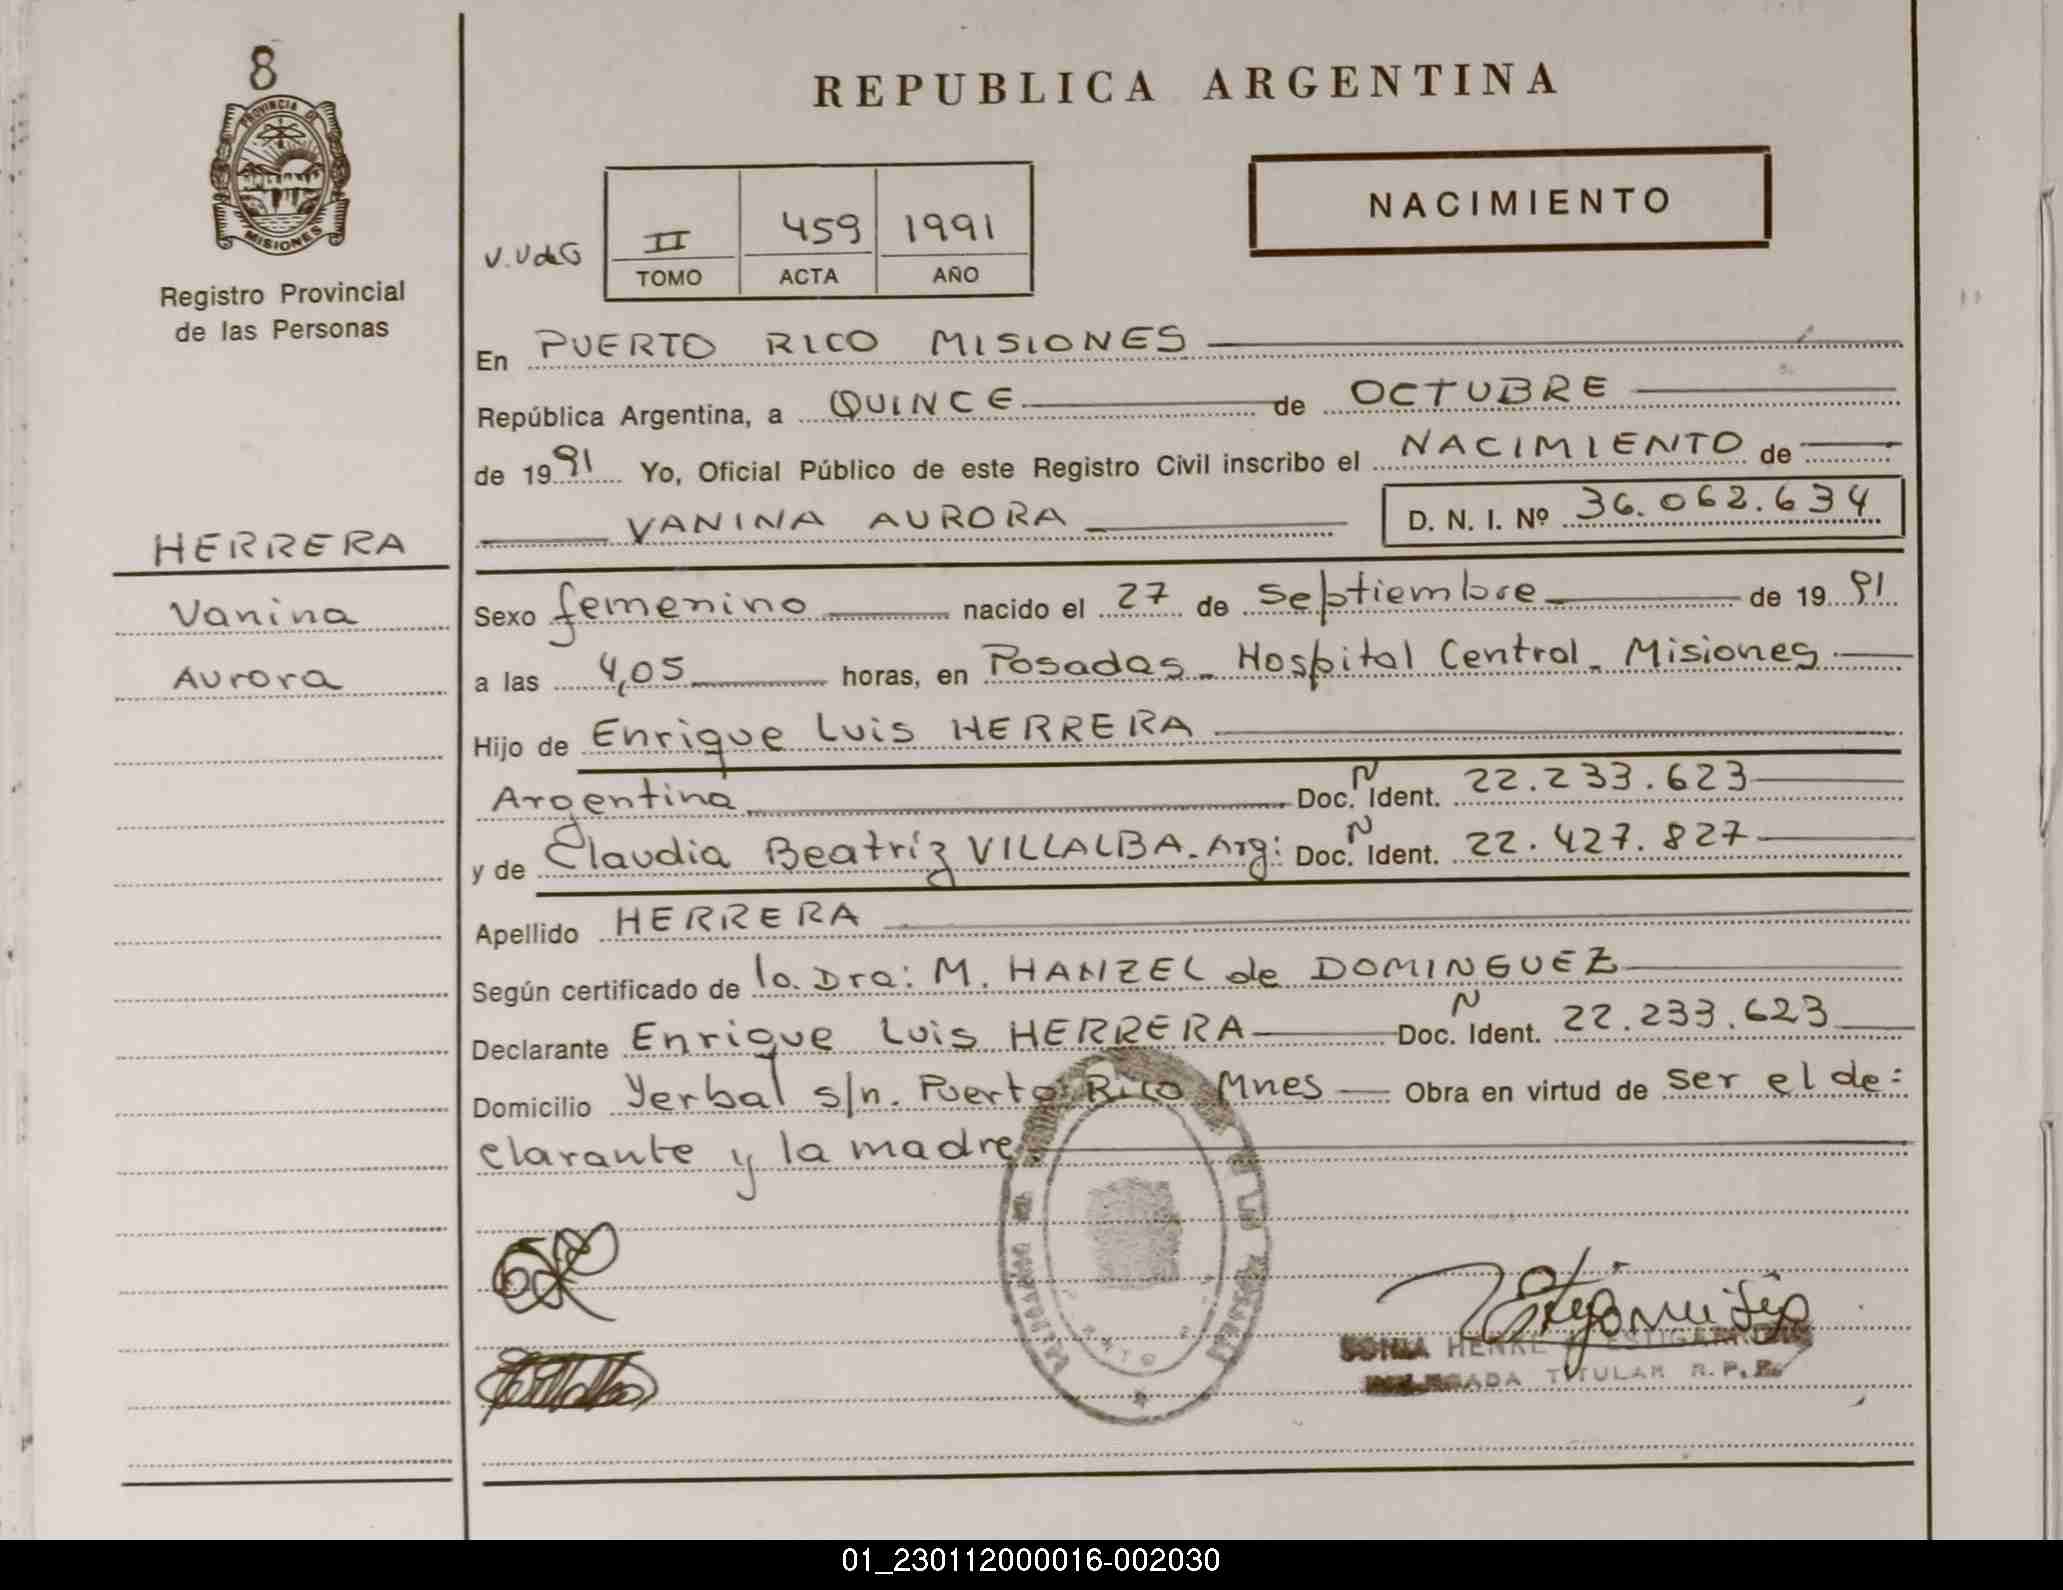 8
PROVINCIA DE
MISIONES
Registro Provincial
de las Personas
HERRERA
Vanina
Aurora
REPUBLICA ARGENTINA
NACIMIENTO
V.V de G
II 459 1991
TOMO ACTA AÑO
En PUERTO RICO MISIONES
República Argentina, a QUINCE de OCTUBRE
de 1991 Yo, Oficial Público de este Registro Civil inscribo el NACIMIENTO de
VANINA AURORA D. N. I. Nº 36.062.634
Sexo femenino nacido el 27 de Septiembre de 1991
a las 4,05 horas, en Posadas - Hospital Central - Misiones
Hijo de Enrique Luis HERRERA
Argentina Doc. N Ident. 22.233.623
y de Claudia Beatríz VILLALBA - Arg: Doc. N Ident. 22.427.827
Apellido HERRERA
Según certificado de la Dra: M. HANZEL de DOMINGUEZ
Declarante Enrique Luis HERRERA Doc. N Ident. 22.233.623
Domicilio Yerbal s/n. Puerto Rico Mnes Obra en virtud de ser el de:
clarante y la madre
SONIA HENKE
DELEGADA TITULAR R.P.P.
01_230112000016-002030